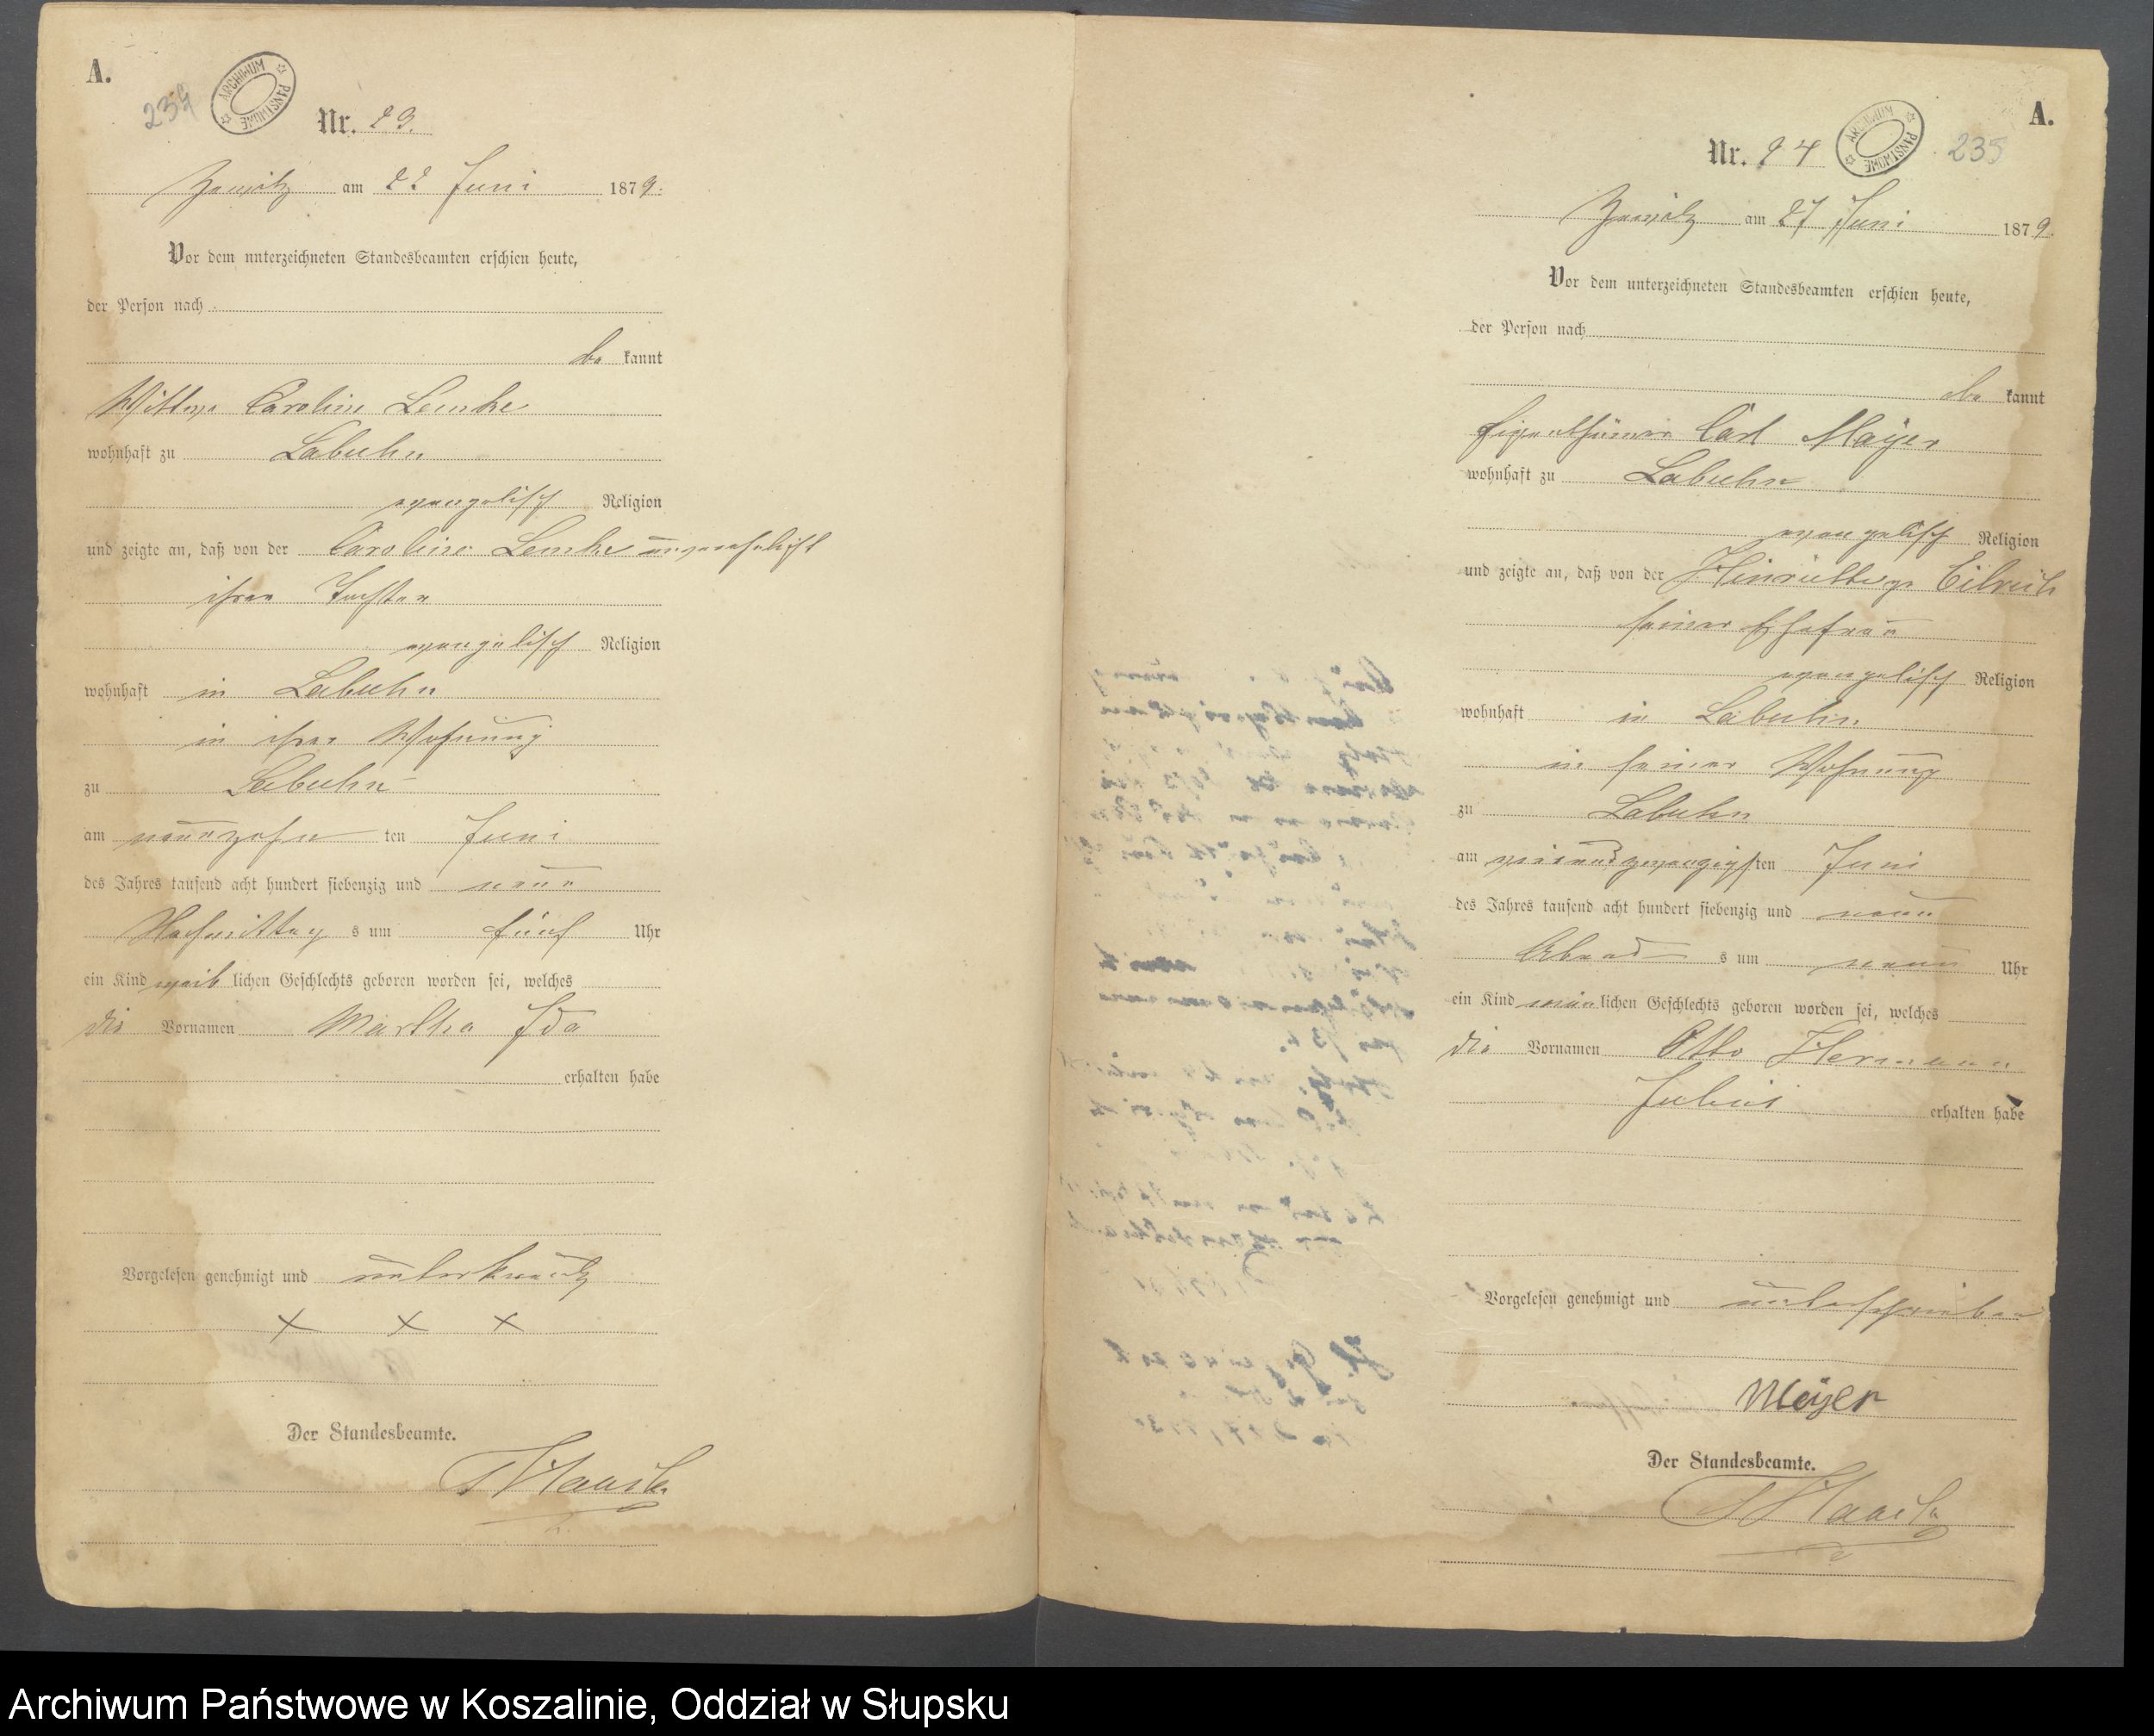 A.
234
ARCHIWUM PAŃSTWOWE
Nr. 93.
Zewitz am 22 Juni 1879.
Vor dem unterzeichneten Standesbeamten erschien heute,
der Person nach
be kannt
Wittwe Caroline Lemke
wohnhaft zu Labuhn
evangelisch Religion
und zeigte an, daß von der Caroline Lemke unverehelicht
ihrer Tochter
evangelisch Religion
wohnhaft in Labuhn
in ihrer Wohnung
zu Labuhn
am neunzehn ten Juni
des Jahres tausend acht hundert siebenzig und neun
Nachmittag s um fünf Uhr
ein Kind weib lichen Geschlechts geboren worden sei, welches
die Vornamen Martha Ida
erhalten habe
Vorgelesen genehmigt und unterkreuzt
X X X
Der Standesbeamte.
A.
Nr. 94
ARCHIWUM PAŃSTWOWE
235
Zewitz am 27 Juni 1879.
Vor dem unterzeichneten Standesbeamten erschien heute,
der Person nach
be kannt
Eigenthümer Carl Mayer
wohnhaft zu Labuhn
evangelisch Religion
und zeigte an, daß von der
seiner Ehefrau
evangelisch Religion
wohnhaft in Labuhn
in seiner Wohnung
zu Labuhn
am vierundzwanzigsten Juni
des Jahres tausend acht hundert siebenzig und neun
Abend s um neun Uhr
ein Kind män lichen Geschlechts geboren worden sei, welches
die Vornamen Otto Hermann
Julius erhalten habe
Vorgelesen genehmigt und unterschrieben
Meyer
Der Standesbeamte.
Archiwum Państwowe w Koszalinie, Oddział w Słupsku